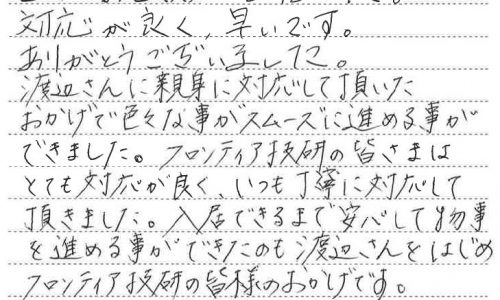 対応が良く、早いです。
ありがとうございました。
渡辺さんに親身に対応して頂いた
おかげで色々な事がスムーズに進める事が
できました。フロンティア技研の皆さまは
とても対応が良く、いつも丁寧に対応して
頂きました。入居できるまで安心して物事
を進める事ができたのも渡辺さんをはじめ
フロンティア技研の皆様のおかげです。